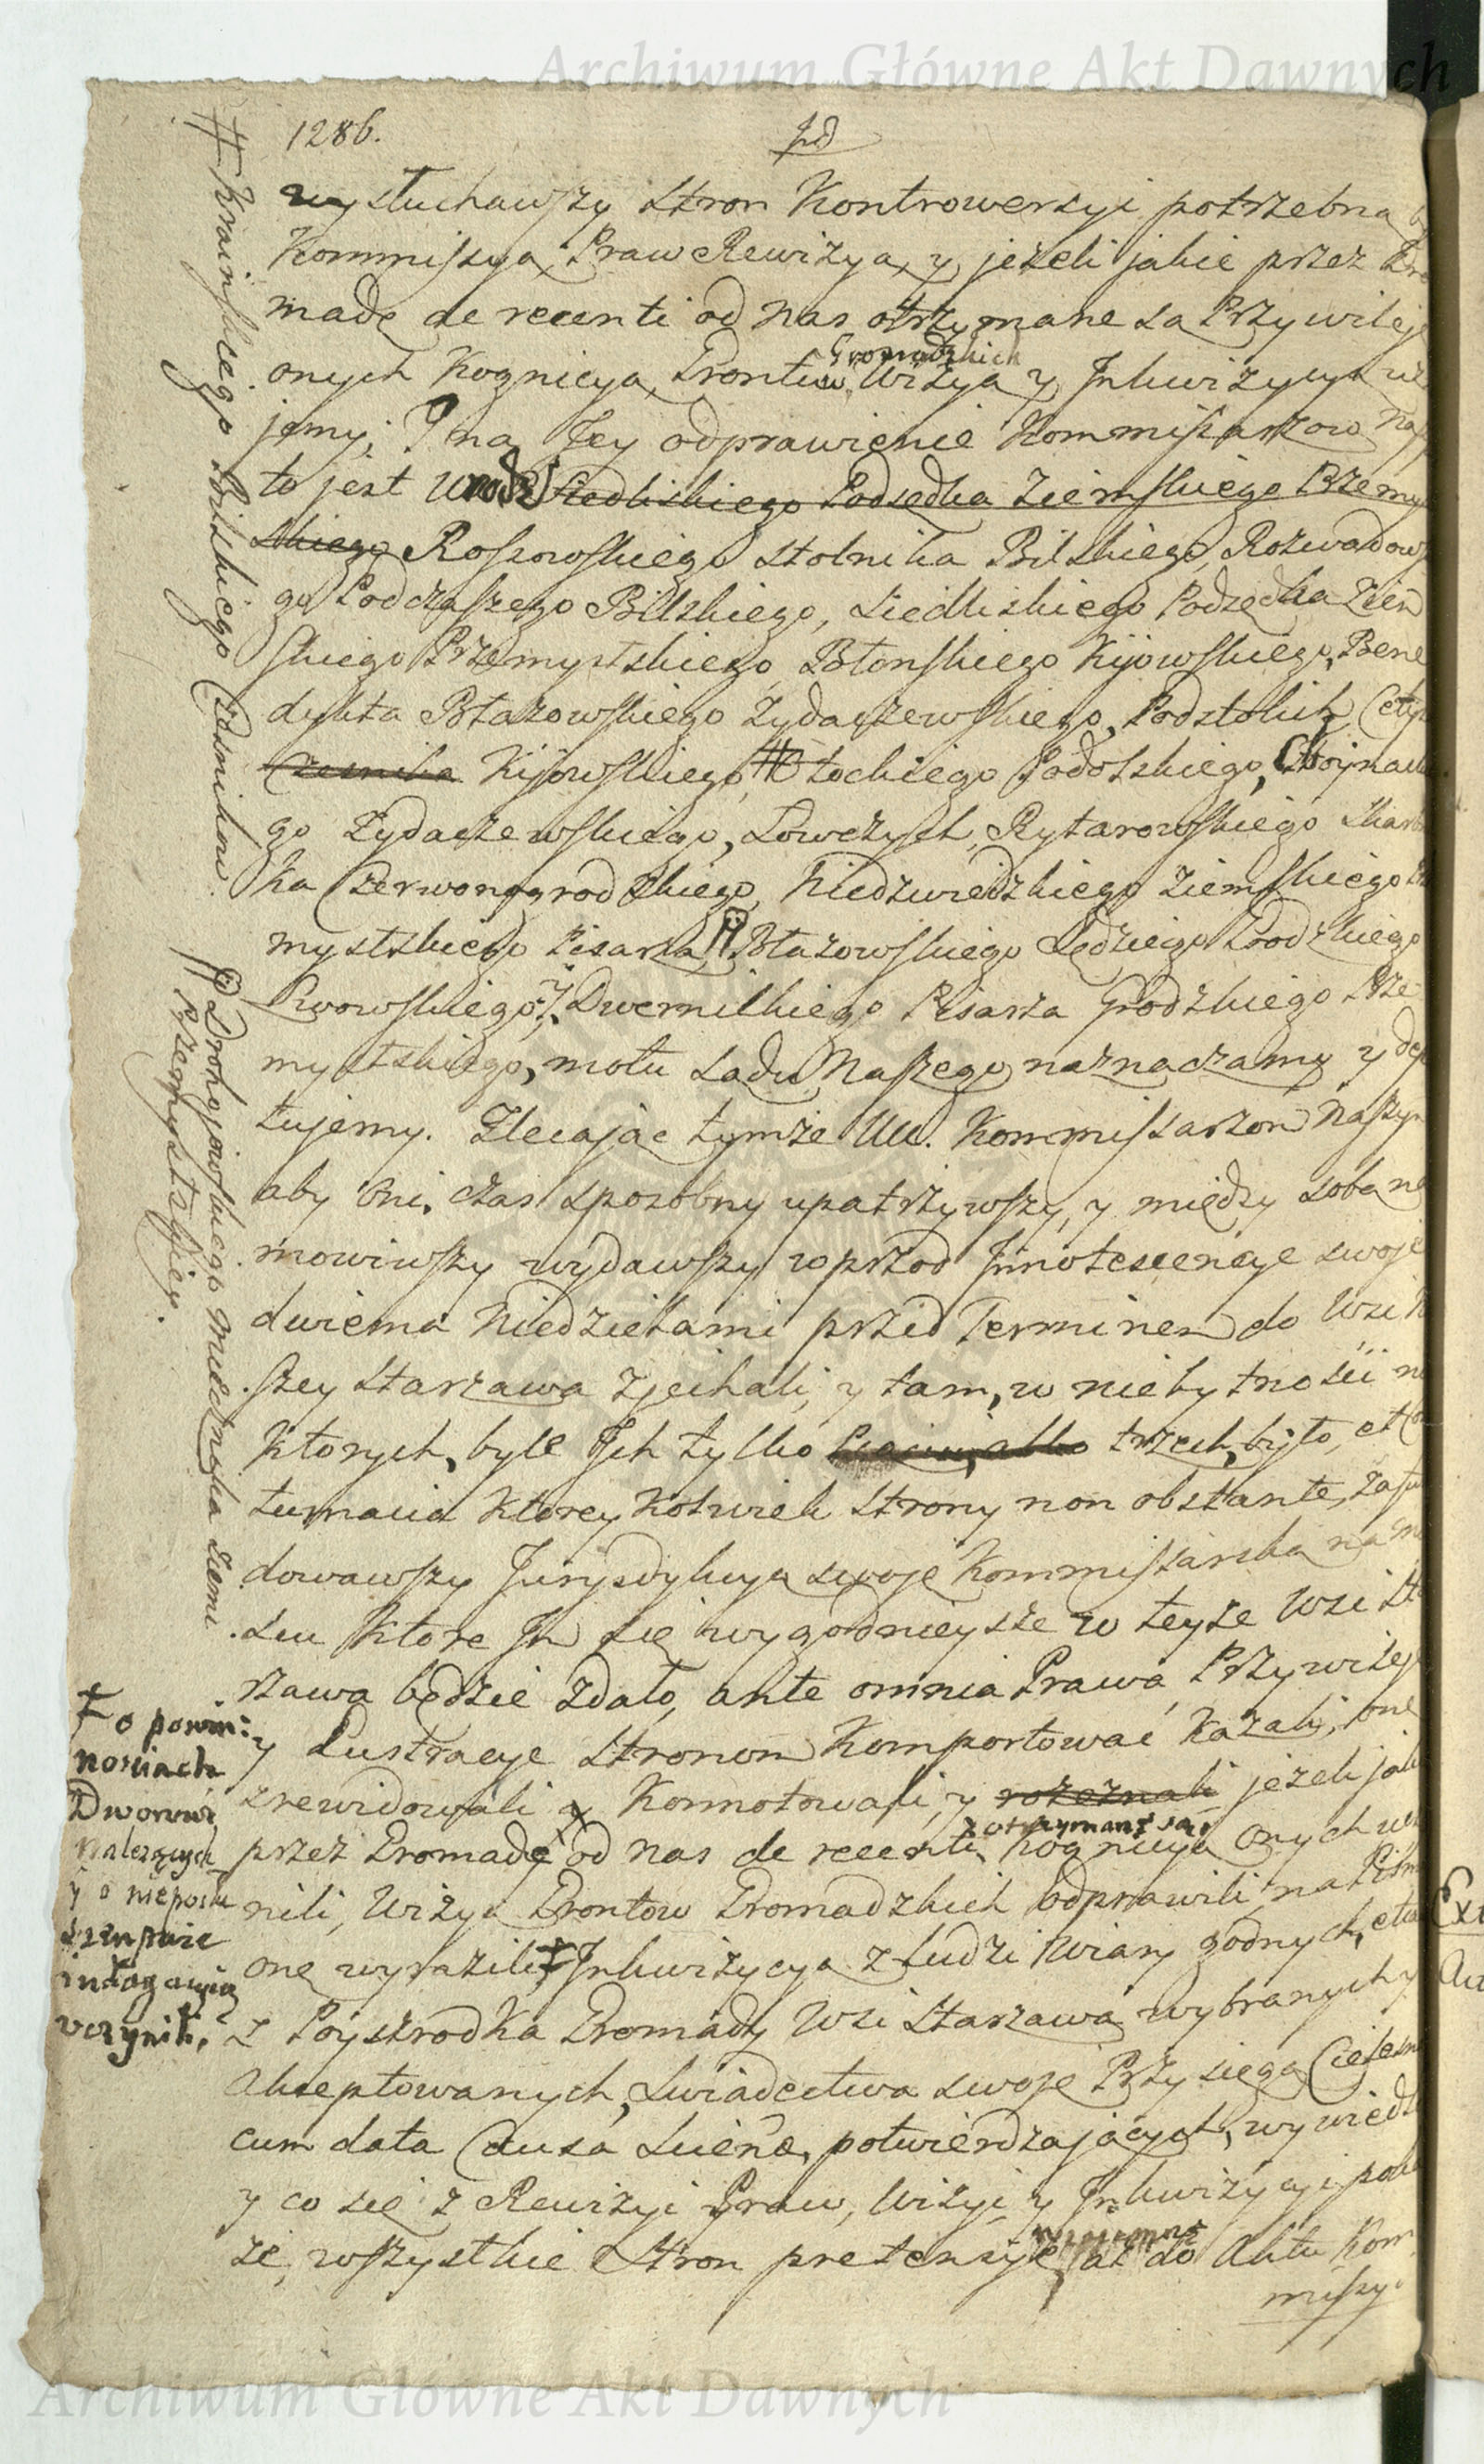 Archiwum Główne Akt Dawnych
1286.
wysłuchawszy Stron Kontrowersyi potrzebna
Kommissya, Praw Rewizya, y jeżeli jakie przez
madę de recenti od Nas otrzymane są Przywileje
Gromadzkich
onych Kognicya, Grontow Wizya y Inkwizycya
jemy; I na Jey odprawienie Kommissarzow
to jest Urodz Siedliskiego Podsędka Ziemskiego Przemy
skiego Rossowskiego Stolnika Bilskiego, Rozwadows
go Podczaszego Bilskiego, Siedliskiego Podsędka Ziem
skiego Przemyslskiego, Błonskiego Kijowskiego, Bene
dykta Błazowskiego Żydaczewskiego, Podstolich,
Czesnika Kijowskiego, # Włockiego Podolskiego, Choynack
go Żydaczewskiego, Łowczych, Rytarowskiego Skarb
ka Czerwonogrodzkiego, Niedzwiedzkiego Ziemskiego
myslskiego Pisarza, Błazowskiego Sędziego Grodzkiego
Lwowskiego, y Dwernickiego Pisarza Grodzkiego Prze
myslskiego, motu Sądu Naszego naznaczamy y depu
tujemy. Zlecając tymże UU. Kommissarzom Naszym
aby oni, czas sposobny upatrzywszy, y między sobą
mowiwszy wydawszy wprzod Innotescencye swoje
dwiema Niedzielami przed Terminem do Wsi
szey Starzawa zjechali, y tam, w niebytności
ktorych, byle Ich tylko trzech, było, et Con
tumacia ktorey kolwiek Strony non obstante, zafun
dowawszy Jurysdykcyą swoję Kommissarską na
scu ktore Im się wygodnieysze w teyże Wsi Sta
rzawa będzie zdało, ante omnia Prawa, Przywileje
y Lustracye Stronom Komportować kazali, one
zrewidowali y Konnotowali, y rozeznali jeżeli jakie
otrzymane są
przez Gromadę od Nas de recenti, kognicyą onych
nili, Wizyą Grontow Gromadzkich odprawili, na Pismie
onę wyrazili, Inkwizycyą z Ludzi Wiary godnych,
z Poysrzodka Gromady Wsi Starzawa wybranych y
Akceptowanych, Swiadectwa swoje Przysięgą Cielesną
cum data Causa Scienæ, potwierdzających, wywiedli
y co się z Rewizyi Praw, Wizyi y Inkwizycyi
że, wszystkie Stron pretensye, aż do Aktu Kom
missyi
# Krainskiego Bilskiego Czesnikow
Drohojowskiego Miecznika Ziemi
Przemyslskiey.
o powin:
nościach
Dworowi
należących
y o nieposłu
szenstwie
indagacyią
uczynili,
Archiwum Główne Akt Dawnych